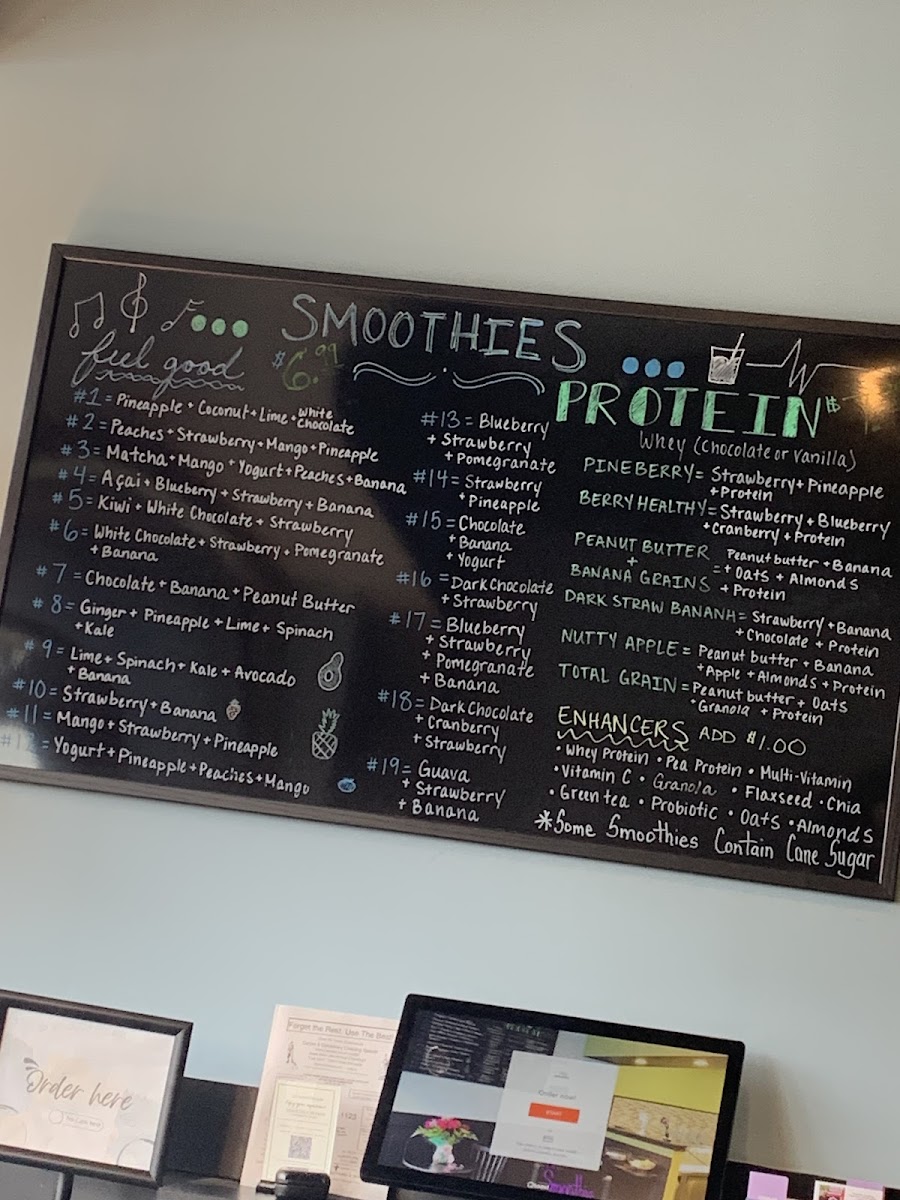 SMOOTHIES
feel good
$6.99
#1 = Pineapple + Coconut + Lime + White Chocolate
#2 = Peaches + Strawberry + Mango + Pineapple
#3 = Matcha + Mango + Yogurt + Peaches + Banana
#4 = Açai + Blueberry + Strawberry + Banana
#5 = Kiwi + White Chocolate + Strawberry
#6 = White Chocolate + Strawberry + Pomegranate
+ Banana
#7 = Chocolate + Banana + Peanut Butter
#8 = Ginger + Pineapple + Lime + Spinach
+ Kale
#9 = Lime + Spinach + Kale + Avocado
+ Banana
#10 = Strawberry + Banana
#11 = Mango + Strawberry + Pineapple
#12 = Yogurt + Pineapple + Peaches + Mango
#13 = Blueberry
+ Strawberry
+ Pomegranate
#14 = Strawberry
+ Pineapple
#15 = Chocolate
+ Banana
+ Yogurt
#16 = Dark Chocolate
+ Strawberry
#17 = Blueberry
+ Strawberry
+ Pomegranate
+ Banana
#18 = Dark Chocolate
+ Cranberry
+ Strawberry
#19 = Guava
+ Strawberry
+ Banana
PROTEIN $
Whey (Chocolate or Vanilla)
PINEBERRY = Strawberry + Pineapple
+ Protein
BERRY HEALTHY = Strawberry + Blueberry
+ Cranberry + Protein
PEANUT BUTTER
+
BANANA GRAINS = Peanut butter + Banana
+ Oats + Almonds
+ Protein
DARK STRAW BANANH = Strawberry + Banana
+ Chocolate + Protein
NUTTY APPLE = Peanut butter + Banana
+ Apple + Almonds + Protein
TOTAL GRAIN = Peanut butter + Oats
+ Granola + Protein
ENHANCERS ADD $1.00
• Whey Protein • Pea Protein • Multi-Vitamin
• Vitamin C • Granola • Flaxseed • Chia
• Green tea • Probiotic • Oats • Almonds
*Some Smoothies Contain Cane Sugar
Order here
Forget the Rest, Use The Best
Order now!
Smoothies